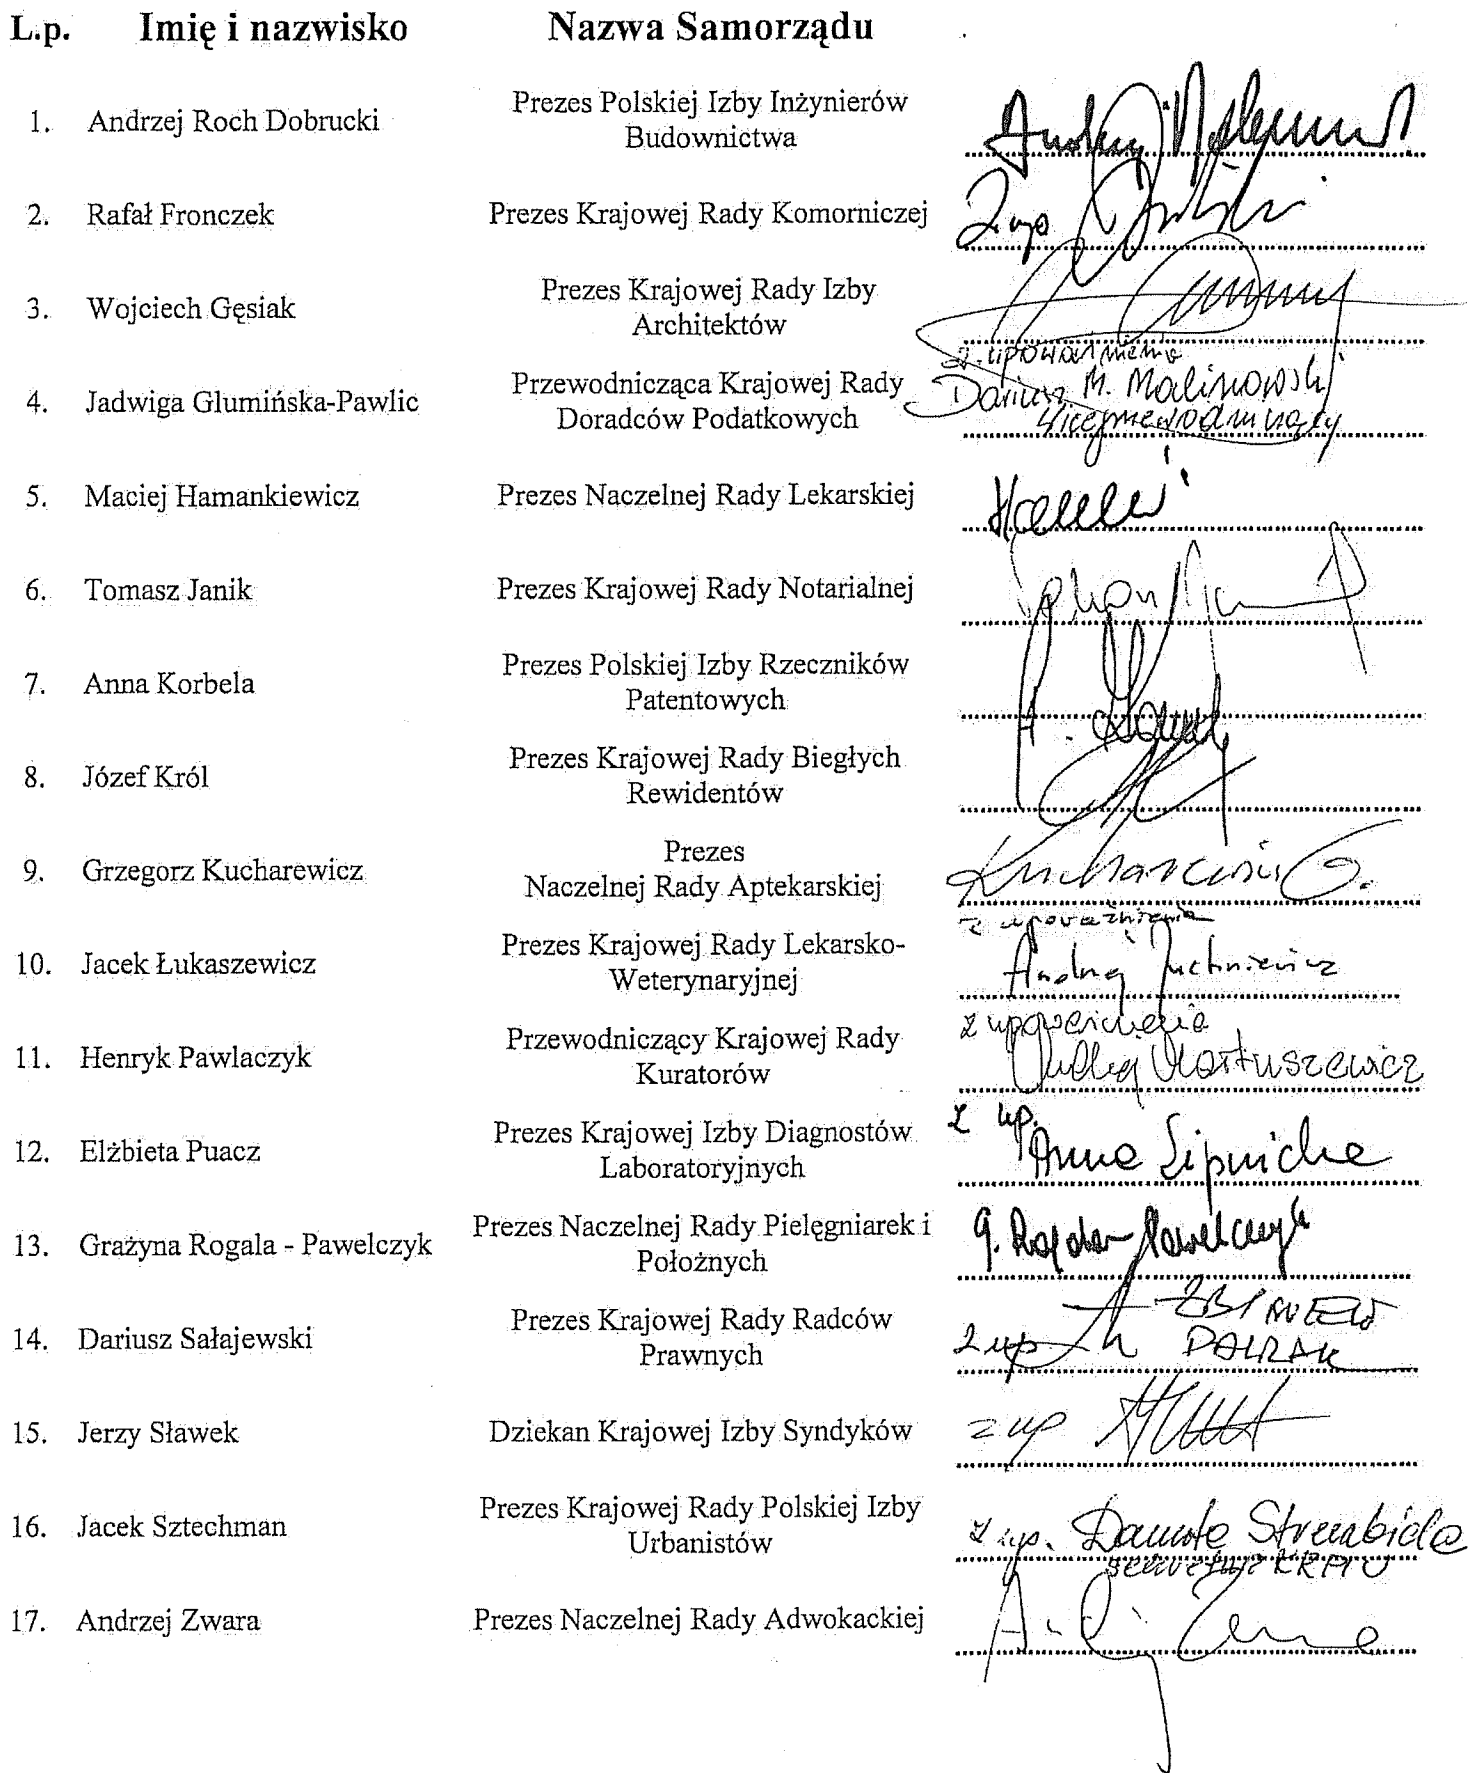 L.p. Imię i nazwisko Nazwa Samorządu
1. Andrzej Roch Dobrucki Prezes Polskiej Izby Inżynierów
Budownictwa
2. Rafał Fronczek Prezes Krajowej Rady Komorniczej
Z up
3. Wojciech Gęsiak Prezes Krajowej Rady Izby
Architektów
z upoważnienia
4. Jadwiga Glumińska-Pawlic Przewodnicząca Krajowej Rady Dariusz M. Malinowski
Doradców Podatkowych Wiceprzewodniczący
5. Maciej Hamankiewicz Prezes Naczelnej Rady Lekarskiej
6. Tomasz Janik Prezes Krajowej Rady Notarialnej
7. Anna Korbela Prezes Polskiej Izby Rzeczników
Patentowych
8. Józef Król Prezes Krajowej Rady Biegłych
Rewidentów
9. Grzegorz Kucharewicz Prezes
Naczelnej Rady Aptekarskiej Kucharewicz G.
z upoważnienia
10. Jacek Łukaszewicz Prezes Krajowej Rady Lekarsko-
Weterynaryjnej Andrzej Juchniewicz
z upoważnienia
11. Henryk Pawlaczyk Przewodniczący Krajowej Rady
Kuratorów Martuszewicz
z up.
12. Elżbieta Puacz Prezes Krajowej Izby Diagnostów
Laboratoryjnych Anna Lipnicka
13. Grażyna Rogala - Pawelczyk Prezes Naczelnej Rady Pielęgniarek i G. Rogala-Pawelczyk
Położnych
ZBIGNIEW
14. Dariusz Sałajewski Prezes Krajowej Rady Radców
Prawnych z up PAWLAK
15. Jerzy Sławek Dziekan Krajowej Izby Syndyków z up
16. Jacek Sztechman Prezes Krajowej Rady Polskiej Izby
Urbanistów z up. Danuta
sekretarz KRPIU
17. Andrzej Zwara Prezes Naczelnej Rady Adwokackiej